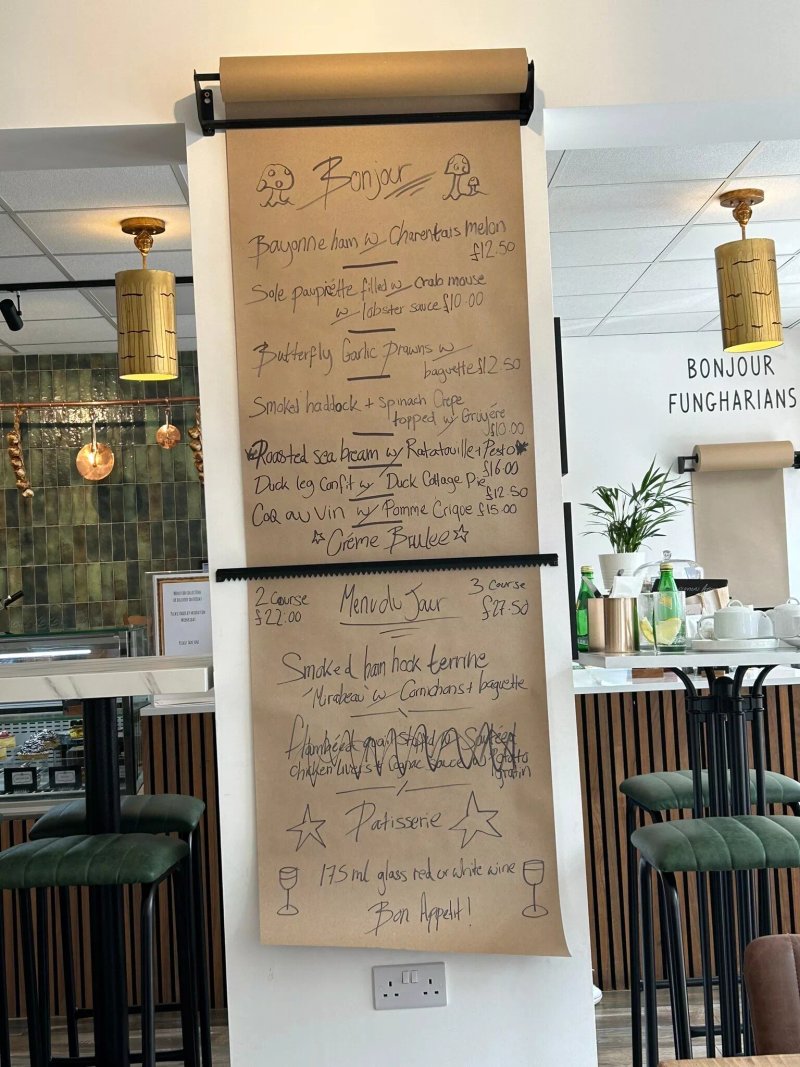 Bonjour
Bayonne ham w Charentais melon
£12.50
Sole paupiette filled w Crab mouse
w lobster sauce £10.00
Butterfly Garlic Prawns w
baguette £12.50
Smoked haddock + Spinach Crepe
topped w Gruyére
£10.00
Roasted sea bream w Ratatouille + Pesto
£16.00
Duck leg Confit w Duck Cottage Pie
£12.50
Coq au Vin w Pomme Crique £15.00
Créme Brulee
2 Course
£22.00
Menu du Jour
3 Course
£27.50
Smoked ham hock terrine
'Mirabeau' w Cornichons + baguette
chicken livers + Cognac sauce w Potato
gratin
Patisserie
175 ml glass red or white wine
Bon Appetit!
BONJOUR
FUNGHARIANS